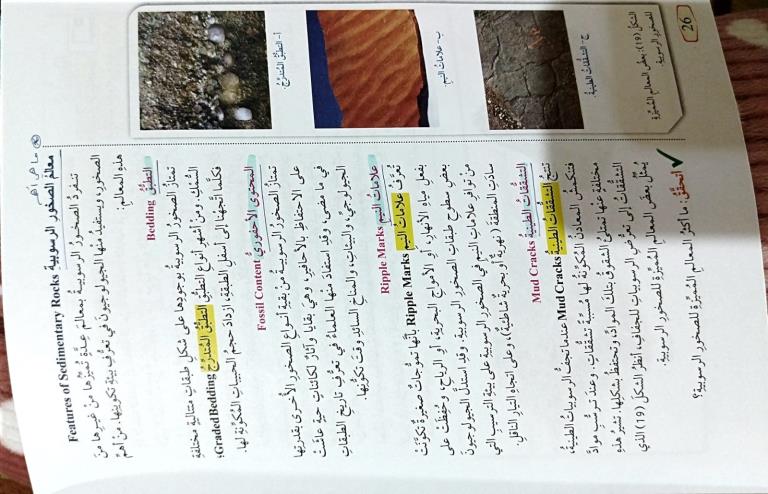 ما هي أهم
معالم الصخور الرسوبية Features of Sedimentary Rocks
تنفردُ الصخورُ الرسوبيةُ بمعالمَ عدةٍ تُميّزُها من غيرِها منَ
الصخورِ، ويستفيدُ منها الجيولوجيونَ في تعرُّفِ بيئةِ تكوينِها. من أهمِّ
هذهِ المعالمِ:
التطبُّق Bedding
تمتازُ الصخورُ الرسوبيةُ بوجودِها على شكلِ طبقاتٍ متتاليةٍ مختلفةِ
السُّمْكِ. ومن أشهرِ أنواعِ التطبُّقِ التطبُّقُ المتدرّجُ Graded Bedding؛
فكلّما اتّجهْنا إلى أسفلِ الطبقةِ، ازدادَ حجمُ الحبيباتِ المُكوِّنةِ لها.
المحتوى الأحفوريّ Fossil Content
تمتازُ الصخورُ الرسوبيةُ من بقيةِ أنواعِ الصخورِ الأُخرى بقدرتِها
على الاحتفاظِ بالأحافيرِ، وهيَ بقايا وآثارٌ لكائناتٍ حيةٍ عاشتْ
في ما مضى، وقدِ استفادَ منها العلماءُ في تعرُّفِ تاريخِ الطبقاتِ
الجيولوجيِّ، والبيئاتِ، والمناخِ السائدِ وقتَ تكوُّنِها.
علامات النيم Ripple Marks
تُعرَّفُ علاماتُ النيمِ Ripple Marks بأنّها تموُّجاتٌ صغيرةٌ تكوَّنتْ
بفعلِ مياهِ الأنهارِ، أوِ الأمواجِ البحريةِ، أوِ الرياحِ، وحُفِظتْ على
بعضِ سطوحِ طبقاتِ الصخورِ الرسوبيةِ. وقدِ استدلَّ الجيولوجيونَ
من توافرِ علاماتِ النيمِ في الصخورِ الرسوبيةِ على بيئةِ الترسيبِ التي
سادتِ المنطقةَ (نهريةٌ أو بحريةٌ شاطئيةٌ)، وعلى اتجاهِ التيارِ الناقلِ.
التشققات الطينية Mud Cracks
تنتجُ التشققاتُ الطينيةُ Mud Cracks عندما تجفُّ الرسوبياتُ الطينيةُ،
فتنكمشُ المعادنُ المُكوِّنةُ لها مُسبِّبةً تشقُّقاتٍ. وعندَ ترسُّبِ موادَّ
مختلفةٍ عنها تمتلئُ الشقوقُ بتلكَ الموادِّ، وتحتفظُ بشكلِها. تشيرُ هذهِ
التشقُّقاتُ إلى تعرُّضِ الرسوبياتِ للجفافِ. أنظرُ الشكلَ (19) الذي
يُمثِّلُ بعضَ المعالمِ المُميِّزةِ للصخورِ الرسوبيةِ.
✓ أتحقَّقُ: ما أكثرُ المعالمِ المُميِّزةِ للصخورِ الرسوبيةِ؟
أ- التطبُّقُ المتدرِّجُ.
ب- علاماتُ النيمِ.
ج- التشقُّقاتُ الطينيةُ.
الشكلُ (19): بعضُ المعالمِ المُميِّزةِ
للصخورِ الرسوبيةِ.
26